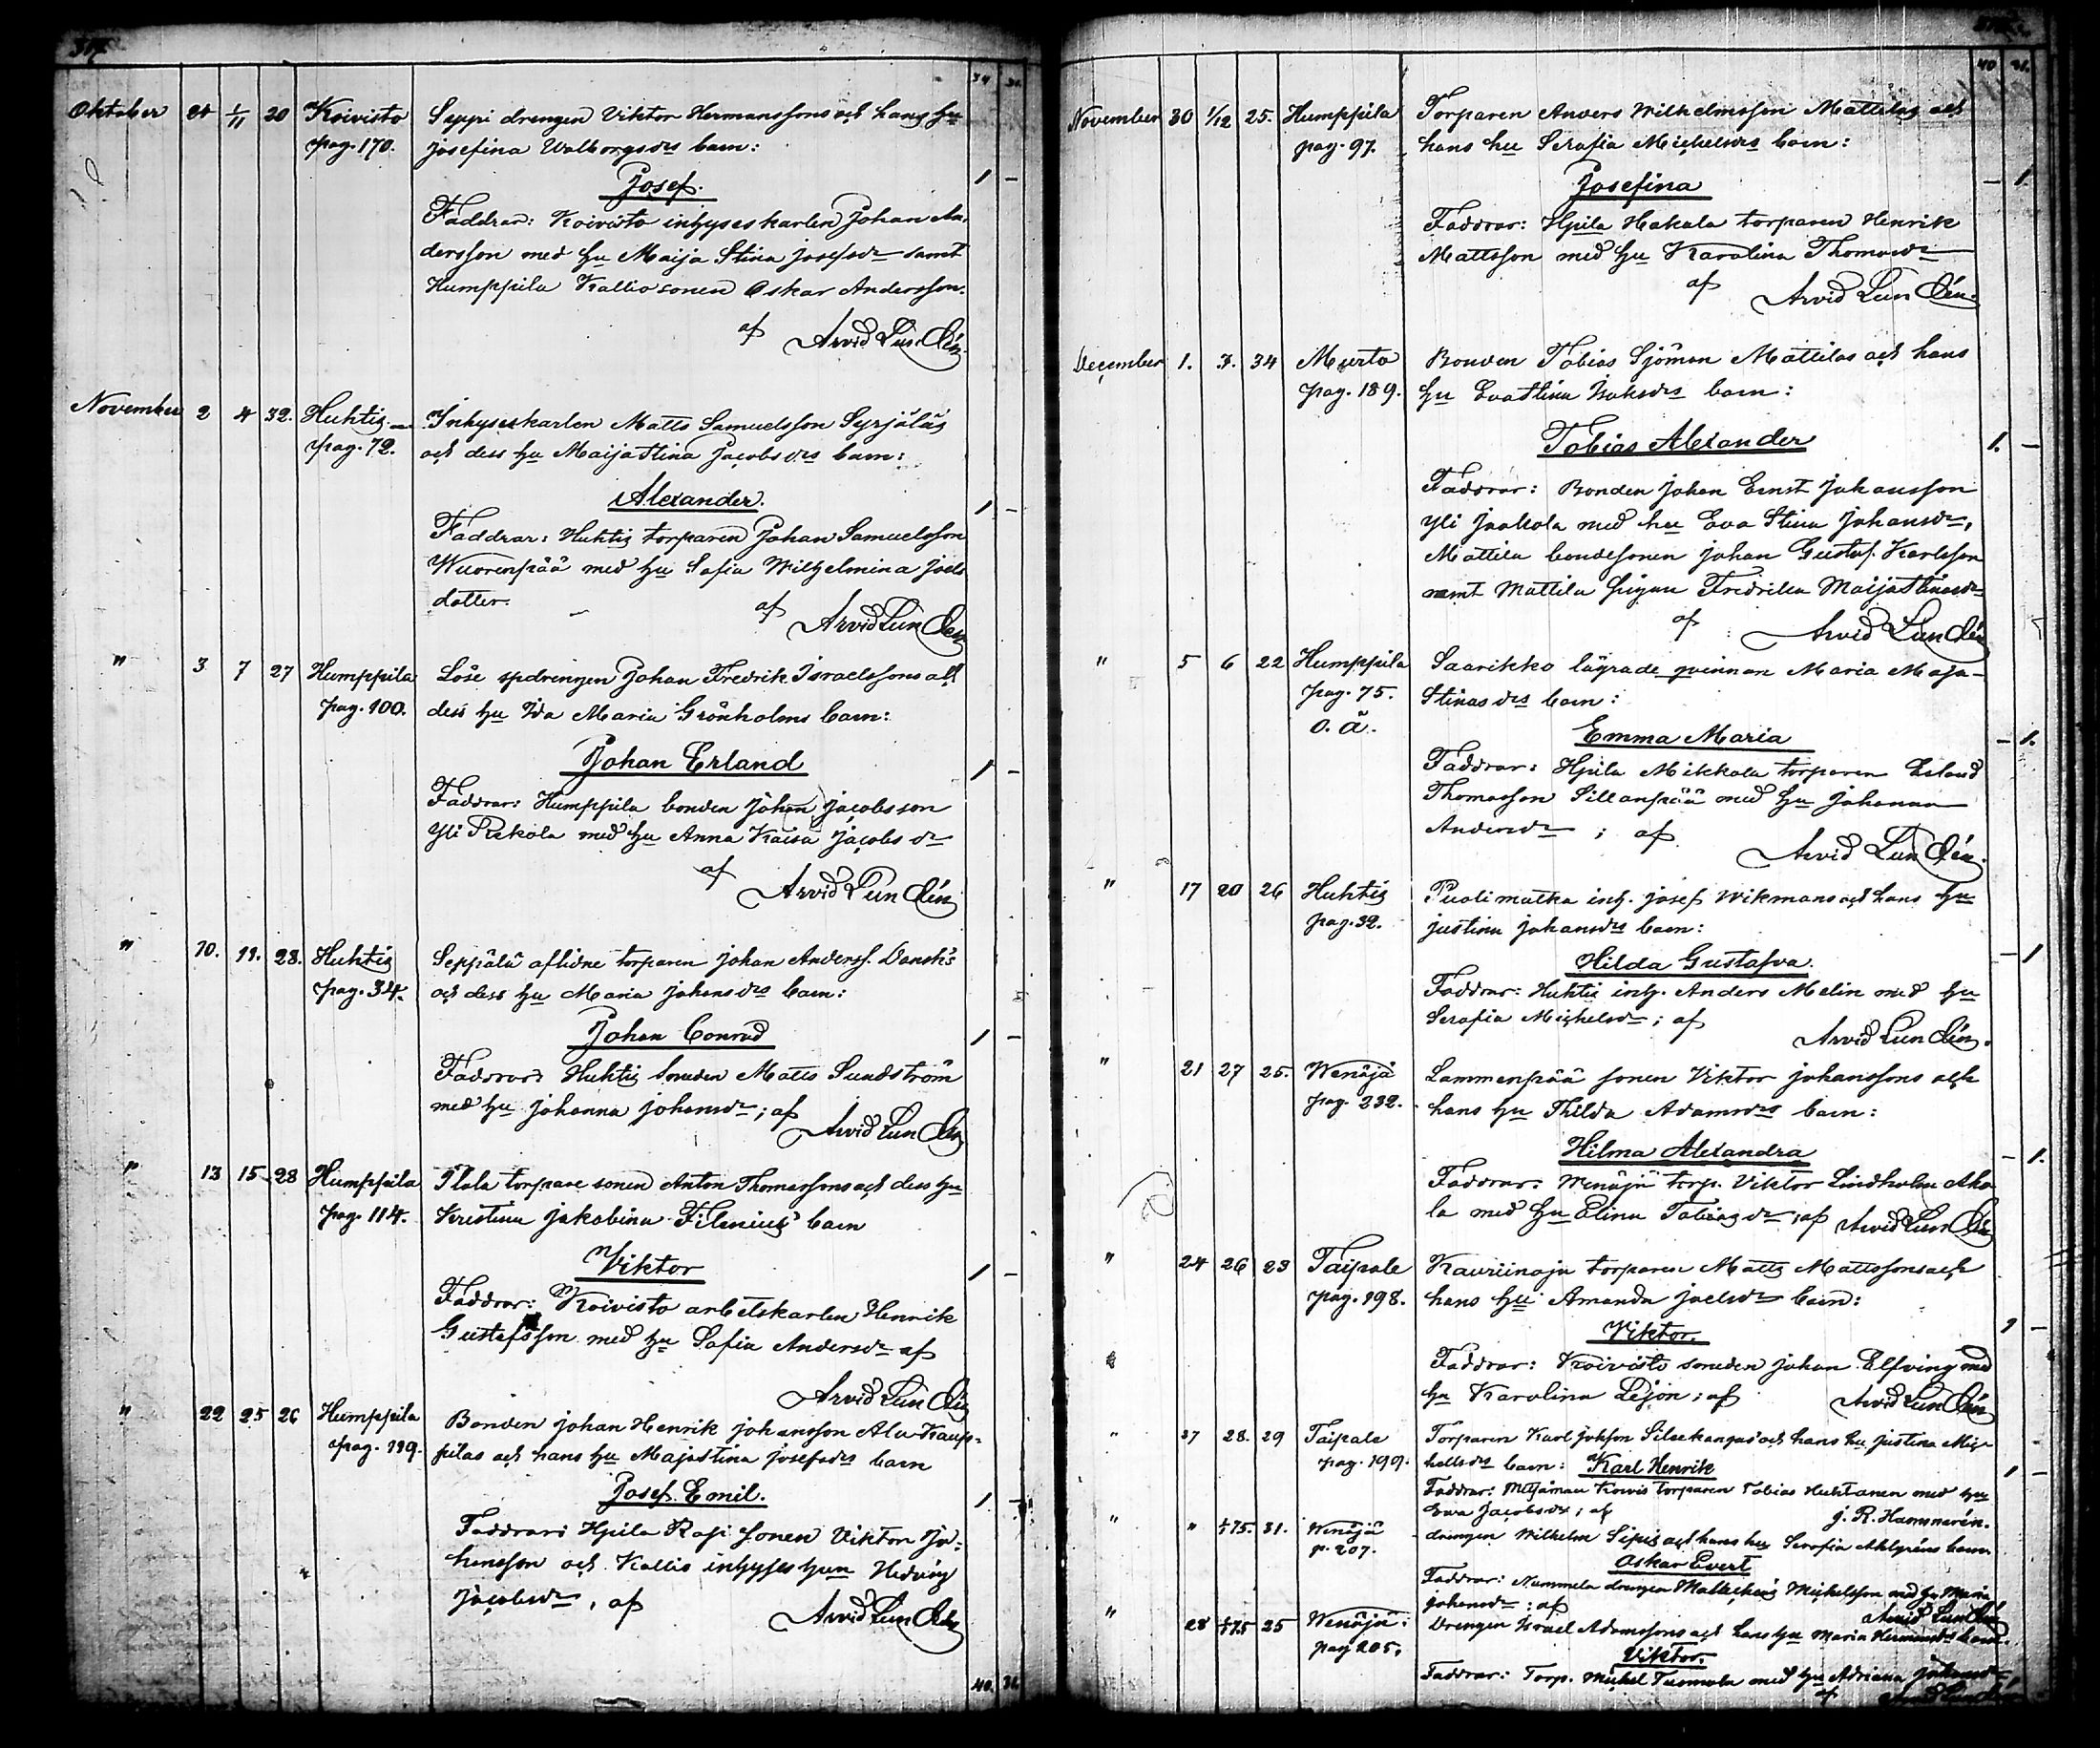 34 31.
Oktober 1/11 20 Koivisto Seppi drengen Viktor Hermanssons och hans hu
pag. 170. Josefina Walborgsdrs barn:
Josef. 1 —
Faddrar: Koivisto inhyseskarlen Johan An-
dersson med hu Maija Stina Josefsdr samt
Humppila Kallio sonen Oskar Andersson.
af Arvid Lundén
November 2 4 32. Huhtis Inhyseskarlen Matts Samuelsson Syrjäläs
pag. 72. och dess hu Maijastina Jacobsdrs barn:
Alexander. 1 —
Faddrar: Huhtis torparen Johan Samuelsson
Wuorenpää med hu Sofia Wilhelmina Joels
dotter. af Arvid Lundén
" 3 7 27 Humppila Löse spdrengen Johan Fredrik Israelssons och
pag. 100. dess hu Ida Maria Grönholms barn:
Johan Erland 1 —
Faddrar: Humppila bonden Johan Jacobsson
Yli Pekola med hu Anna Kaisa Jacobsdr
af Arvid Lundén
" 10. 11. 28. Huhtis Seppälä aflidne torparen Johan Anderss. Dansk's
pag. 34. och dess hu Maria Johansdrs barn:
Johan Conrad 1 —
Faddrar: Huhtis bonden Matts Sundström
med hu Johanna Johansdr; af Arvid Lundén
" 13 15 28 Humppila torpare sonen Anton Thomassons och dess hu
pag. 114. Kristina Jakobina Filenius' barn
Viktor 1 —
Faddrar: Koivisto arbetskarlen Henrik
Gustafsson med hu Sofia Andersdr af
Arvid Lundén
" 22 25 26 Humppila Bonden Johan Henrik Johansson Ala Kaup-
pag. 119. pilas och hans hu Majastina Josefsdrs barn
Josef Emil. 1 —
Faddrar: Hpila Rasi sonen Viktor Jo-
hansson och Kallio inhyses hun Hedvig
Jacobsdr, af Arvid Lundén
40. 31.
40 31.
November 30 1/12 25. Humppila Torparen Anders Wilhelmsson Mattilas och
pag. 97. hans hu Serafia Michelsdrs barn:
Josefina — 1.
Faddrar: Hpila Hakala torparen Henrik
Mattsson med hu Karolina Thomasdr
af Arvid Lundén.
December 1. 7. 34 Murto Bonden Tobias Sjöman Mattilas och hans
pag. 189. hu Evastina Isaksdrs barn:
Tobias Alexander 1. —
Faddrar: Bonden Johan Ernst Johansson
Yli Jaakola med hu Eva Stina Johansdr,
Mattila bondesonen Johan Gustaf Karlsson
samt Mattila pigan Fredrika Maijastinasdr
af Arvid Lundén
" 5 6 22 Humppila Saarikko lägrade qvinnan Maria Maja-
pag. 75. Stinasdrs barn:
o. ä. Emma Maria — 1.
Faddrar: Hpila Mikkola torparen Erland
Thomasson Sillanpää med hu Johanna
Andersdr; af
Arvid Lundén.
" 17 20 26 Huhtis Puolimatka inh. Josef Wikmans och hans hu
pag. 32. Justina Johansdrs barn:
Hilda Gustafva. — 1
Faddrar: Huhtis inh. Anders Melin med hu
Serafia Michelsdr; af Arvid Lundén.
" 21 27 25. Wenäjä Lammenpää sonen Viktor Johanssons och
pag. 232. hans hu Thilda Adamsdrs barn:
Hilma Alexandra — 1.
Faddrar: Wenäjä torp. Viktor Lindholm Aho-
la med hu Elina Tobiasdr; af Arvid Lundén
" 24 26 23 Taipale torparen Matts Mattssons och
pag. 198. hans hu Amanda Joelsdr barn:
Viktor. 1 —
Faddrar: Koivisto smeden Johan Elfving med
hu Karolina Lejon; af Arvid Lundén
" 27 28. 29 Taipale Torparen Karl Johsson och hans hu Justina Mic-
pag. 191. helsdrs barn: Karl Henrik 1 —
Faddrar: torparen Tobias Huhtanen med hu
Eva Jacobsdr; af J. R. Hammarén.
" " 1/1 75. 31. Wenäjä drengen Wilhelm och hans hu Serafia Ahlgréns barn
p. 207. Oskar Evert
Faddrar: Nummela drengen Michelsson med hu Maria
Johansdr; af Arvid Lundén
" 28 1/1 75 25 Wenäjä: Drengen Israel Adamssons och hans hu Maria Hermansdrs barn.
pag 205. Viktor.
Faddrar: Torp. Michel Tuomola med hu Adriana Johansdr
af Arvid Lundén